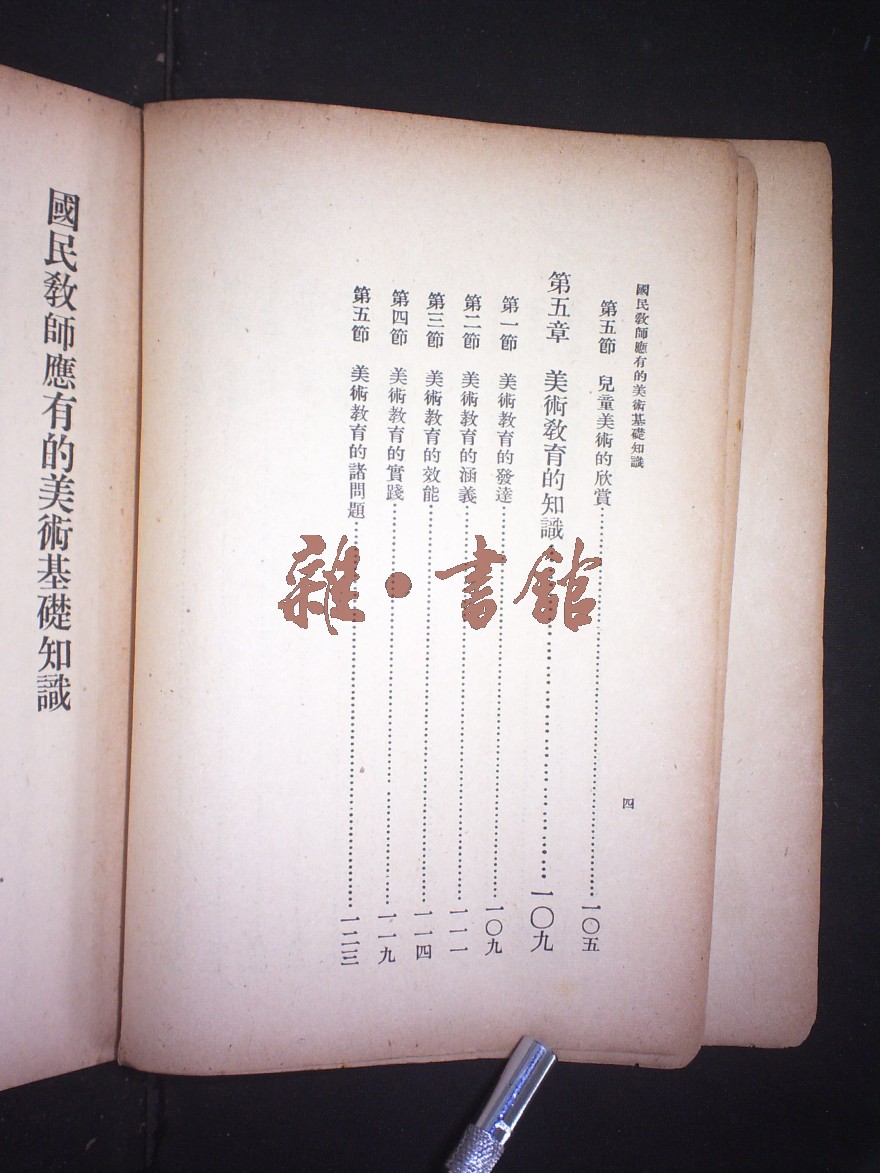 國民教師應有的美術基礎知識
第五節 兒童美術的欣賞……一〇五
第五章 美術教育的知識……一〇九
第一節 美術教育的發達……一〇九
第二節 美術教育的涵義……一一一
第三節 美術教育的效能……一一四
第四節 美術教育的實踐……一一九
第五節 美術教育的諸問題……一二三
四
國民教師應有的美術基礎知識
雜·書館